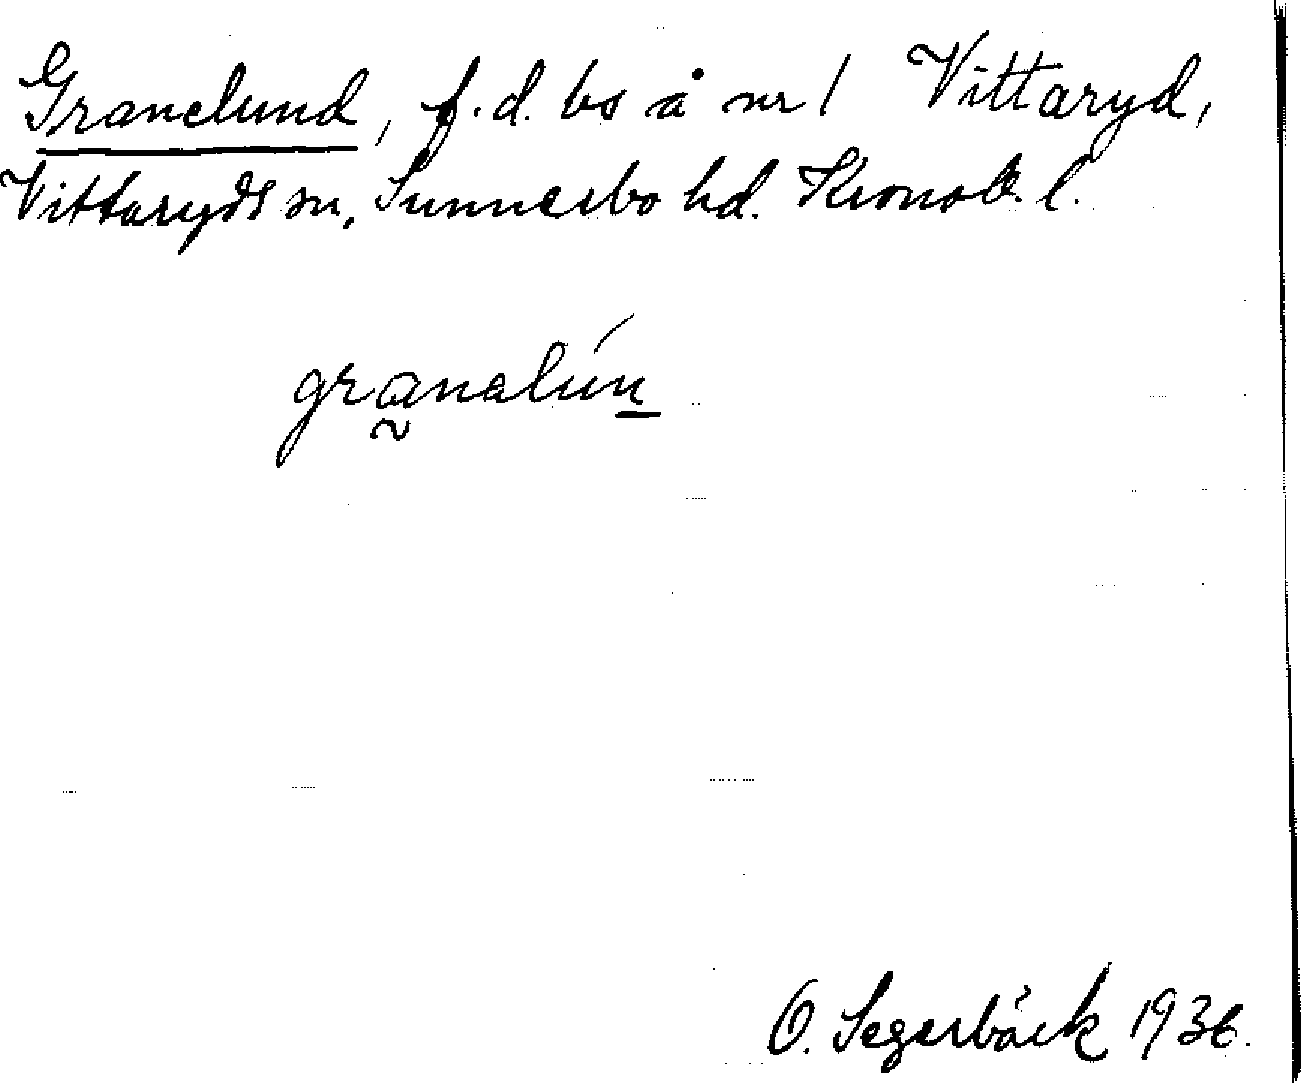 Granelund, f.d. bs å nr 1 Vittaryd,
Vittaryds sn, Sunnerbo hd. Kronob. l.
granelún
O. Segerbäck 1936.